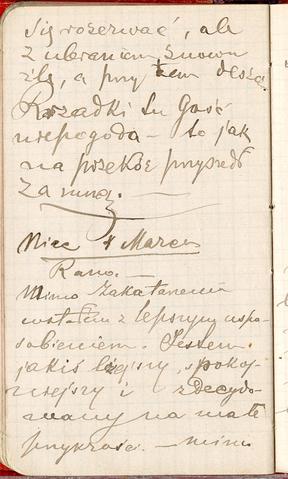 się rozerwać, ale
z ubraniem znowu
źle, a przy tem deszcz.
Rzadki tu Gość
niepogoda – to jak
na przekór przyszedł
za mną. —
Nice 4 Marca
Rano. —
Mimo zakatarzenia
wstałem z lepszym uspo
sobieniem. Jestem
jakiś lżejszy, spokoj-
niejszy i zdecydo
wany na małe
przykrości. — mimo